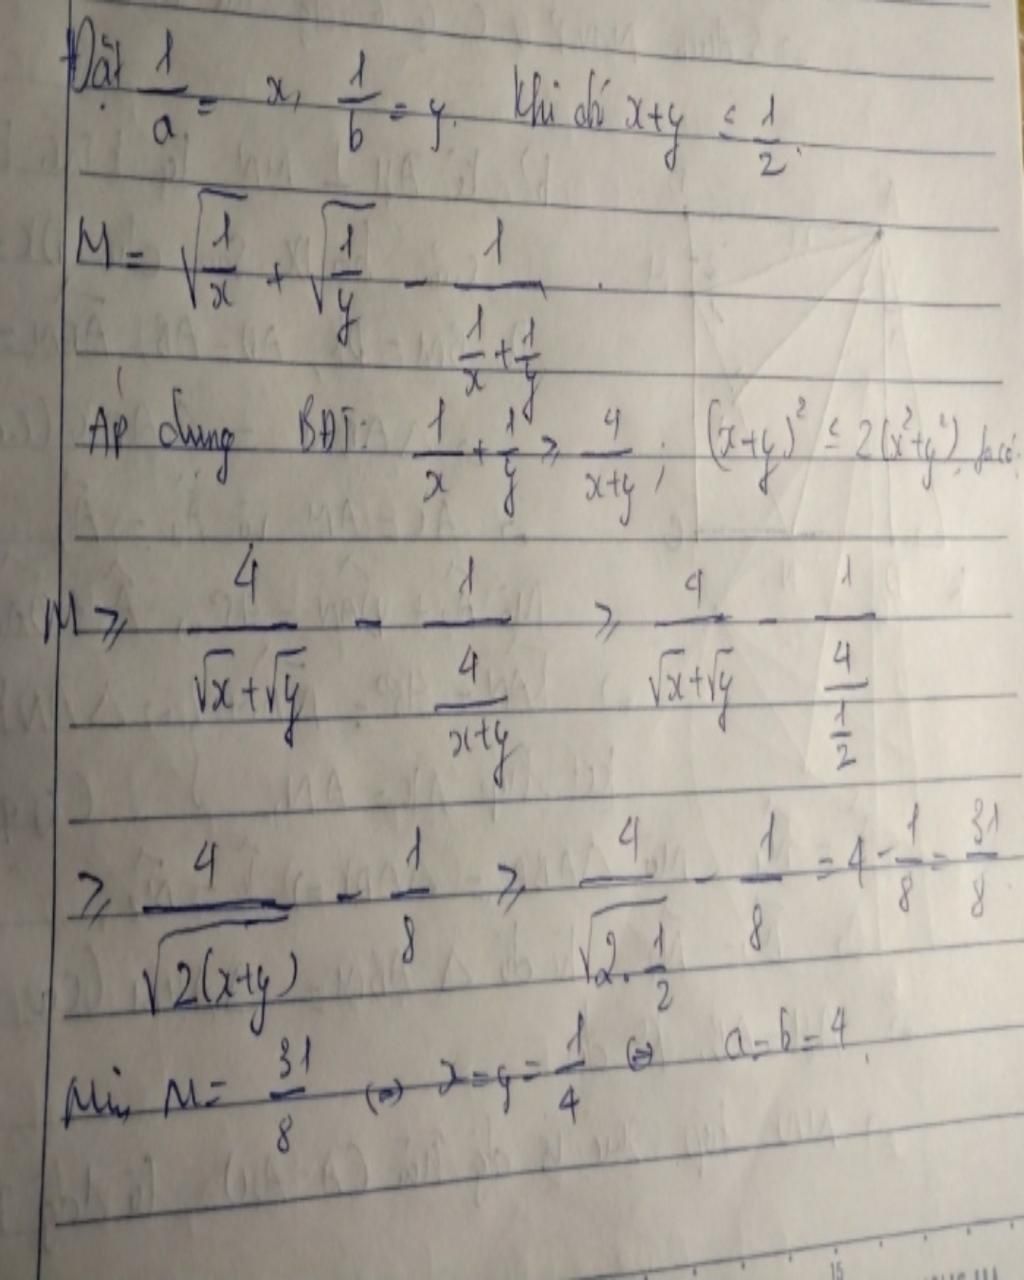 Đặt 1/a = x, 1/b = y. Khi đó x+y ≤ 1/2.
M = √(1/x) + √(1/y) - 1/(1/x + 1/y).
Áp dụng BĐT: 1/x + 1/y ≥ 4/(x+y); (x+y)² ≤ 2(x²+y²), ta có:
M ≥ 4/(√x+√y) - 1/(4/(x+y)) ≥ 4/(√x+√y) - 1/(4/(1/2))
≥ 4/√(2(x+y)) - 1/8 ≥ 4/√(2.1/2) - 1/8 = 4 - 1/8 = 31/8
Min M = 31/8 ⇔ x=y=1/4 ⇔ a=b=4.
15